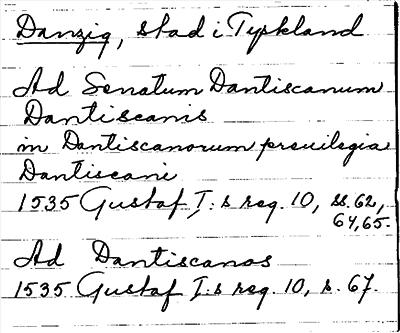 Danzig, stad i Tyskland
Ad Senatum Dantiscanum
Dantiscanis
in Dantiscanorum preuilegia
Dantiscani
1535 Gustaf I:s reg. 10, ss. 62,
64, 65.
Ad Dantiscanos
1535 Gustaf I:s reg. 10, s. 67.